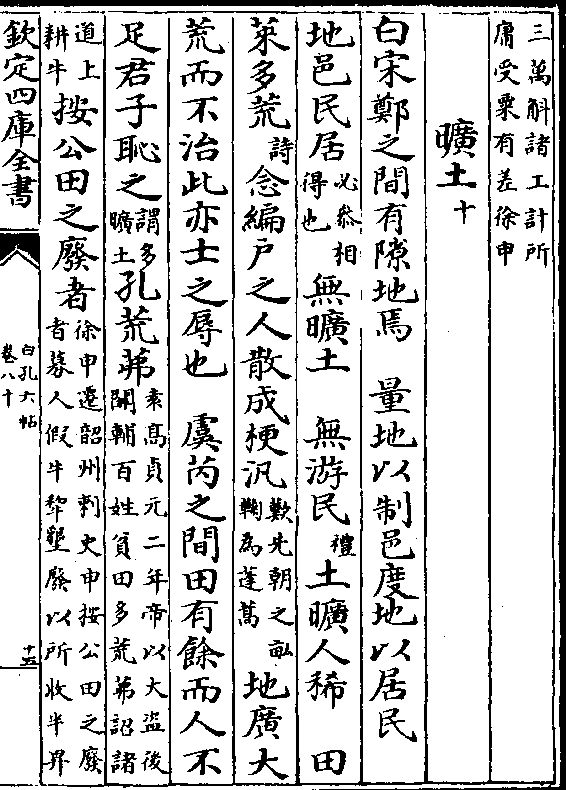 三萬斛諸工計所
庸受粟有差徐申
曠土十
白宋鄭之間有隙地焉　量地以制邑度地以居民
地邑民居必叅相得也　無曠土　無游民禮土曠人稀　田
萊多荒詩念編戶之人散成梗汎歎先朝之畝鞠為蓬蒿　地廣大
荒而不治此亦士之辱也　虞芮之間田有餘而人不
足君子恥之謂多曠土孔荒茀袁髙貞元二年帝以大盜後關輔百姓貧田多荒茀詔諸
道上耕牛按公田之廢者徐申遷韶州刺史申按公田之廢者募人假牛犂墾廢以所收半畀
欽定四庫全書
白孔六帖
卷八十
十五